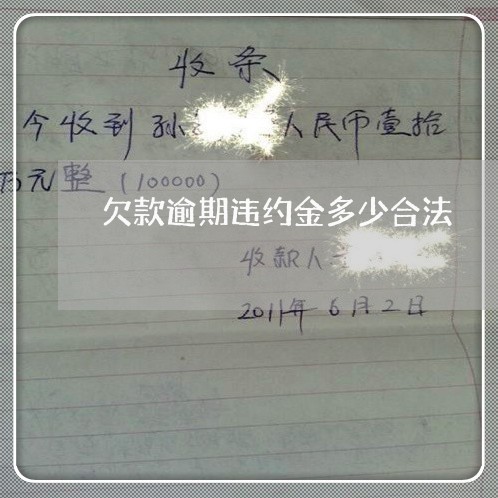 收条
今收到孙人民币壹拾
万元整（100000）
欠款逾期违约金多少合法
收款人
2011年6月2日